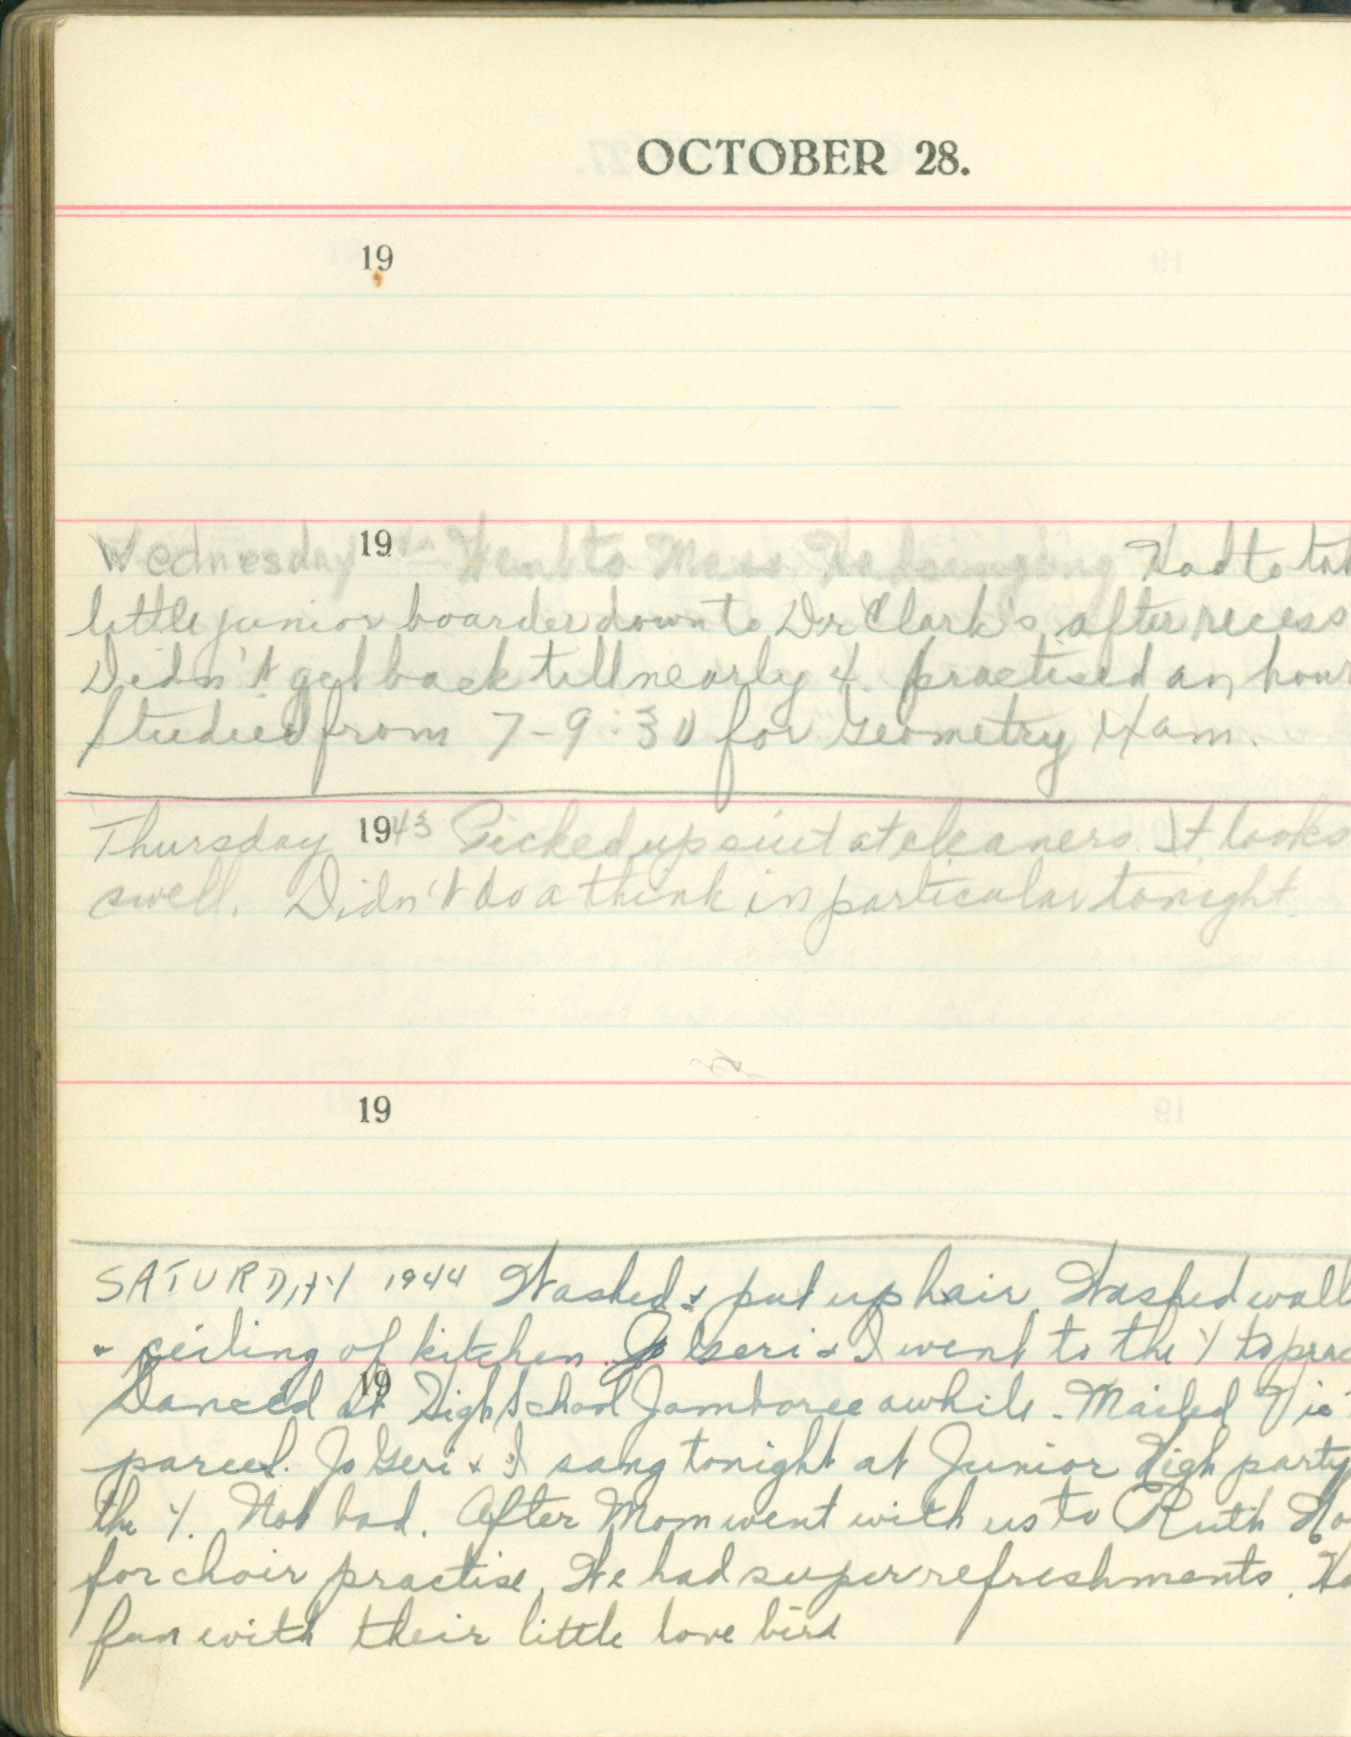 OCTOBER 28.
19
Wednesday 19 Went to Mass. Had singing Had to
little junior boarder down to Dr Clark's after recess
Didn't get back till nearly 4. practised an hour
Studied from 7-9:30 for Geometry Xam.
Thursday 1943 Picked up suit at cleaners. It looks
swell. Didn't do a think in particular tonight.
19
SATURDAY 1944 Washed & put up hair. Washed wall
& ceiling of kitchen. Jo Geri & I went to the Y to
19
Danced at High School Jamboree awhile. Mailed
parcel. Jo Geri & I sang tonight at Junior High party
the Y. Not bad. After Mom went with us to Ruth
for choir practise. We had super refreshments.
fun with their little love bird